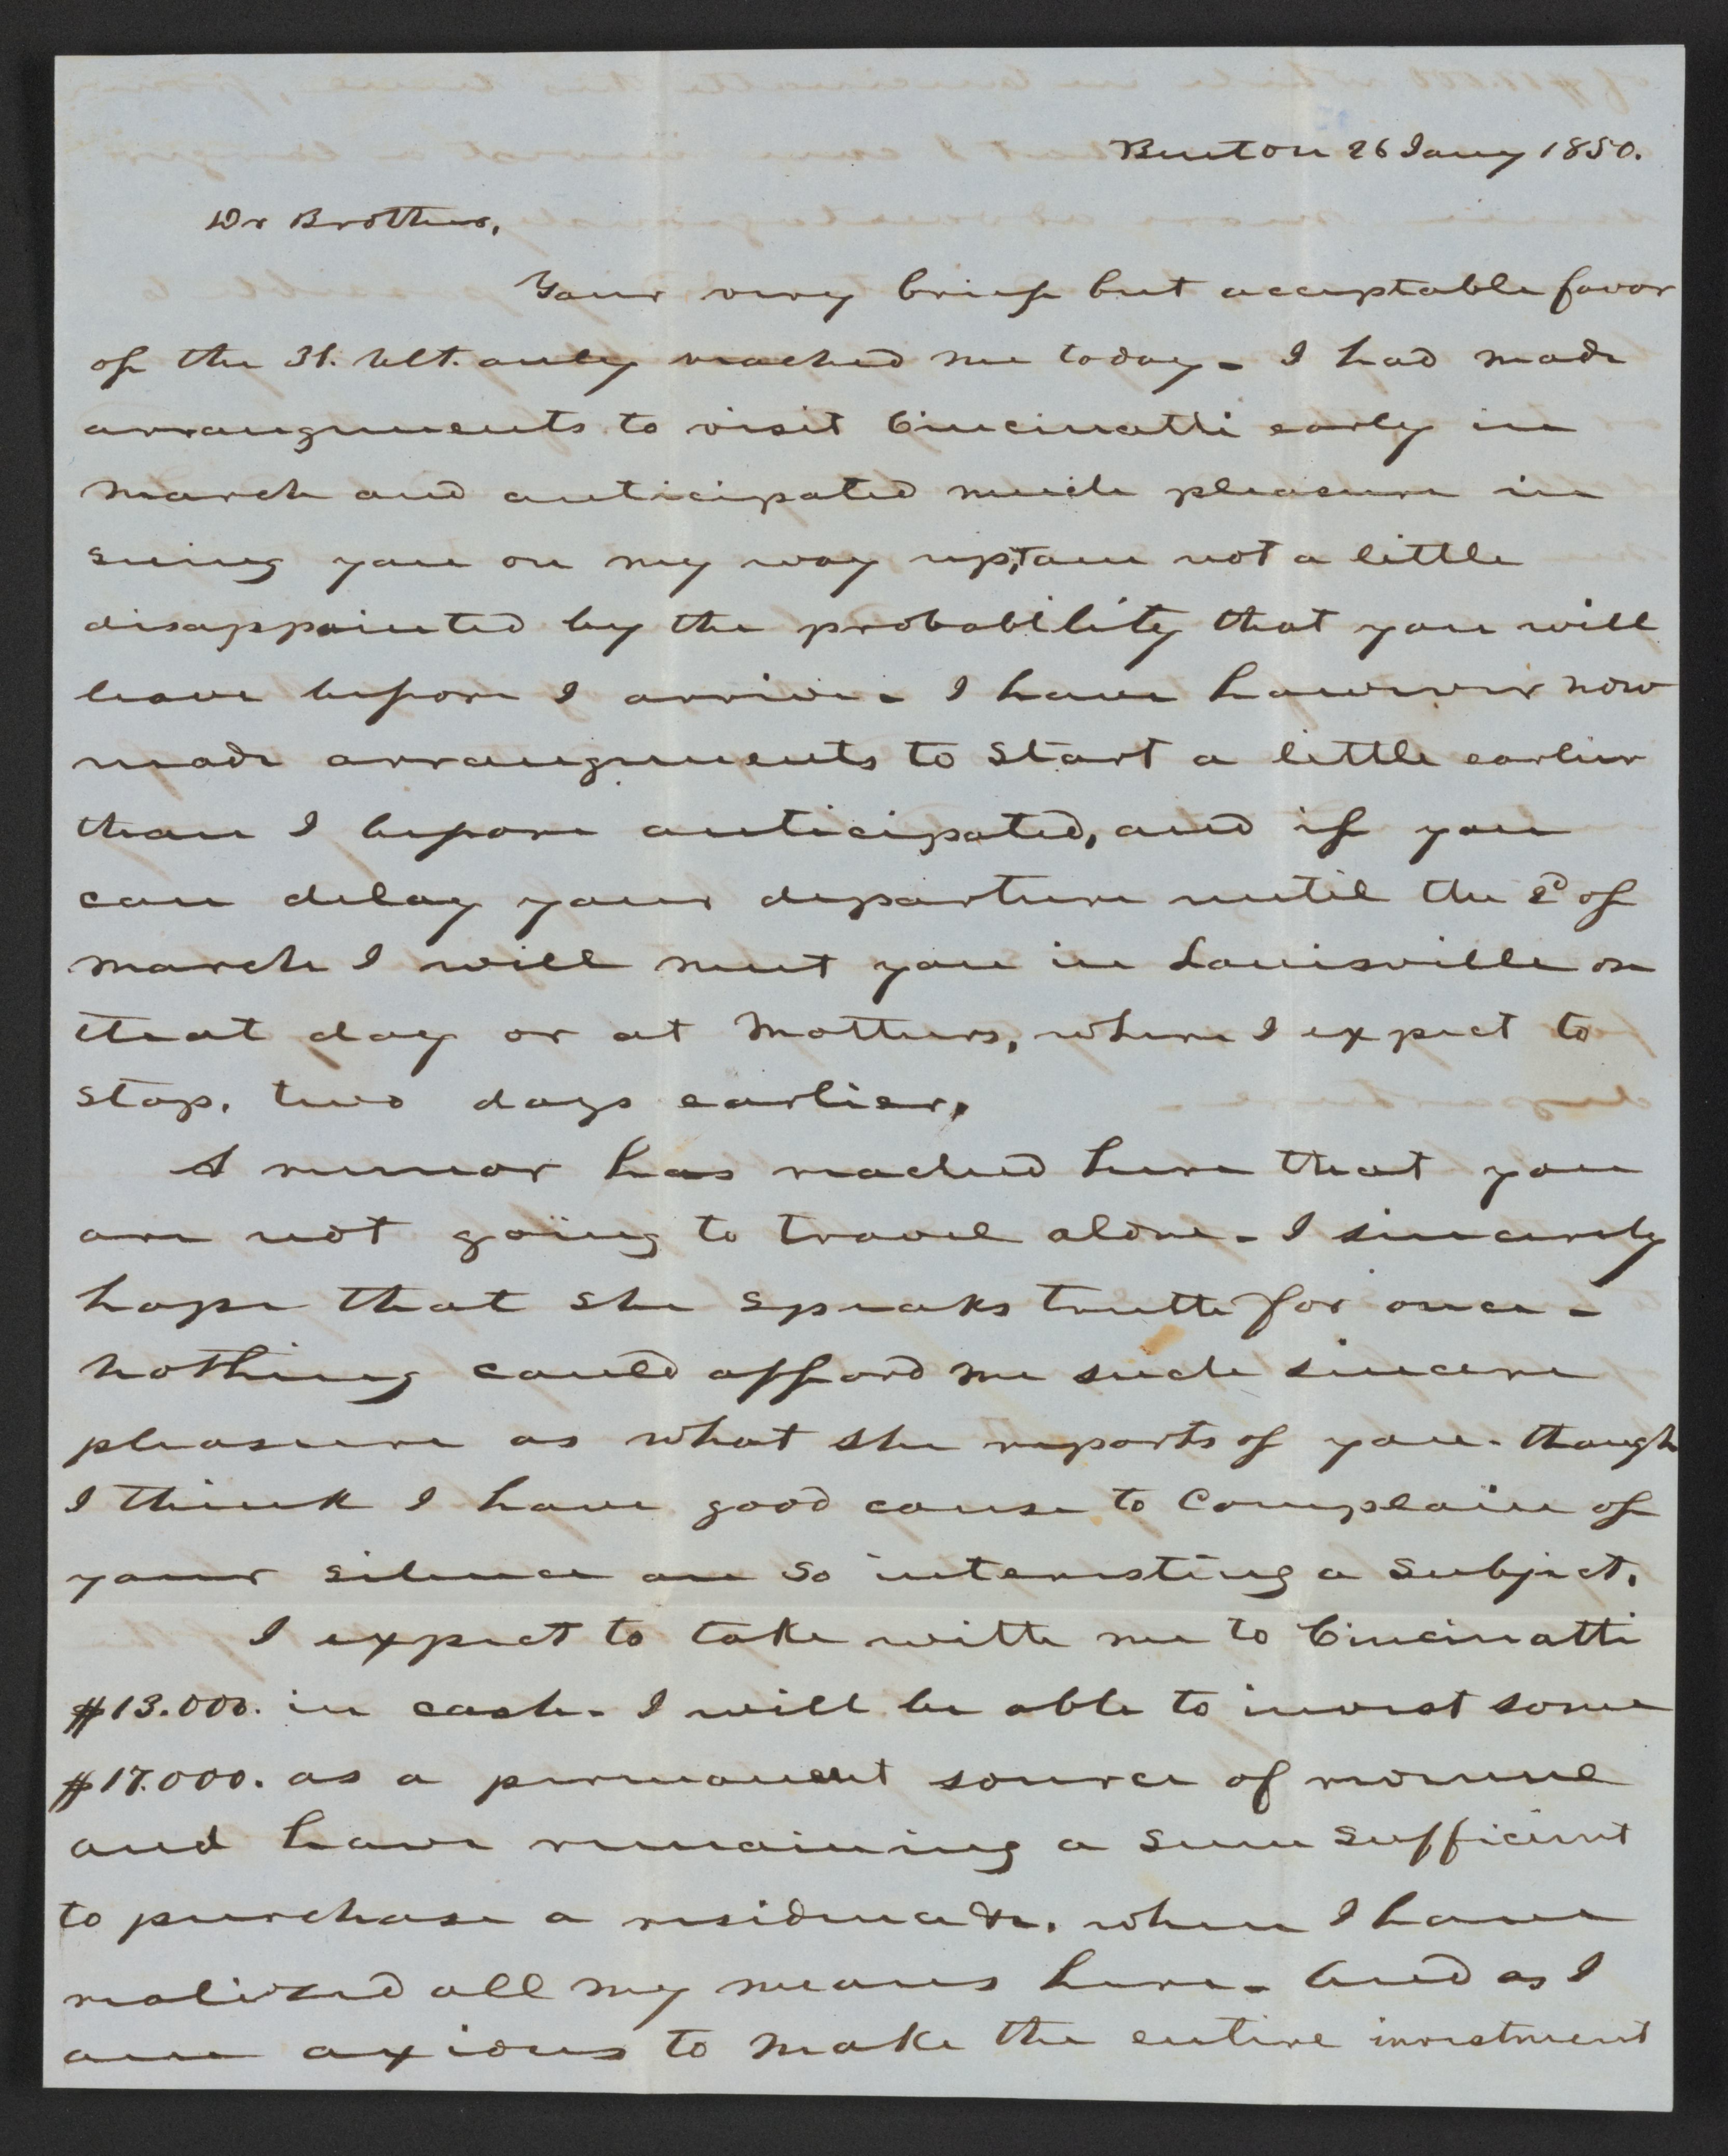 Benton 26 Jany 1850.
Dr Brother,
Your very brief but acceptable favor
of the 31. Ult. only reached me today - I had made
arrangements to visit Cincinatti early in
March and anticipated much pleasure in
seeing you on my way up, I am not a little
disappointed by the probability that you will
leave before I arrive - I have however now
made arrangements to start a little earlier
than I before anticipated, and if you
can delay your departure until the 2d of
March I will meet you in Louisville on
that day or at Mothers, where I expect to
stop, two days earlier.
A rumor has reached here that you
are not going to travel alone - I sincerely
hope that she speaks truth for once -
nothing could afford me such sincere
pleasure as what she reports of you - though
I think I have good cause to complain of
your silence on so interesting a subject.
I expect to take with me to Cincinatti
$13.000. in cash - I will be able to invest some
$17.000. as a permanent source of revenue
and have remaining a sum sufficient
to purchase a residence &c. when I have
realized all my means here - And as I
am axious to make the entire investment